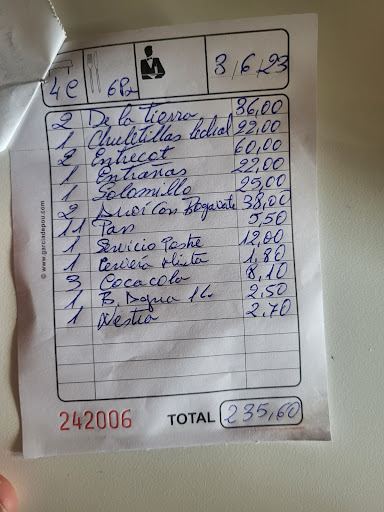 4C 6Px 3/6/23
2 De la tierra 36,00
1 Chuletillas lechal 22,00
2 Entrecot 60,00
1 Entrañas 22,00
1 Solomillo 25,00
2 Arroi Con Bogavante 38,00
11 Pan 5,50
1 Servicio Postre 12,00
1 Cerveza Mixta 1,80
3 Cocacola 8,10
1 B. Agua 1L. 2,50
1 Nestia 2,70
© www.garciadepou.com
242006 TOTAL 235,60